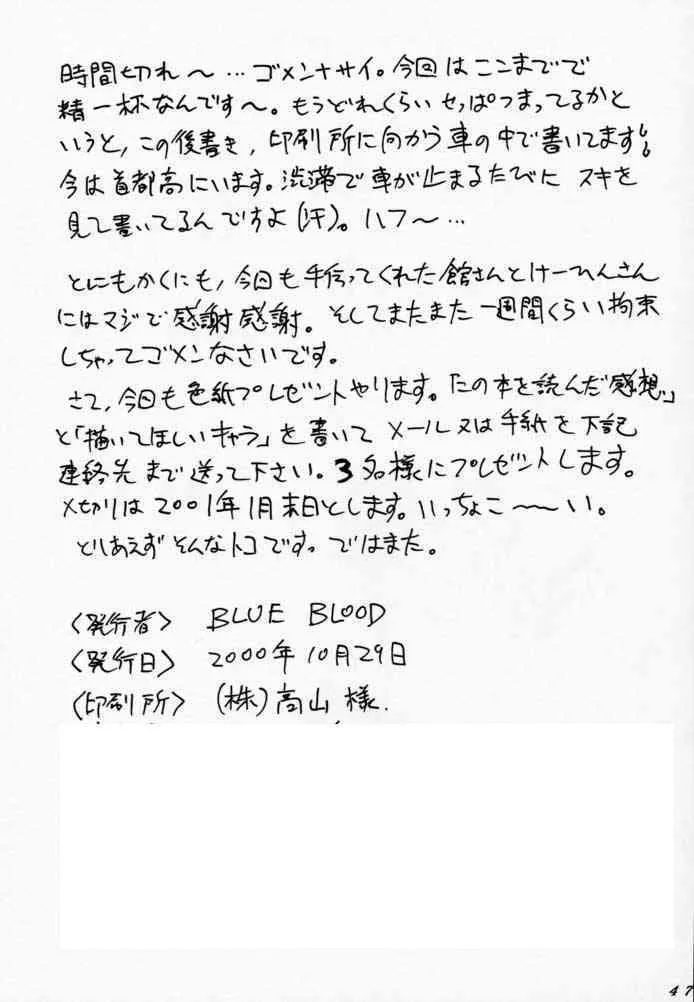 時間切れ〜…ゴメンナサイ。今回はここまでで
精一杯なんです〜。もうどれくらいセッぱつまってるかと
いうと,この後書き,印刷所に向かう車の中で書いてます!。
今は首都高にいます。渋滞で車が止まるたびに スキを
見て書いてるんですよ(汗)。ハフ〜…
とにもかくにも,今回も手伝ってくれた館さんとけーひんさん
にはマジで感謝感謝。そしてまたまた一週間くらい拘束
しちゃってゴメンなさいです。
さて,今回も色紙プレゼントやります。「この本を読んだ感想」
と「描いてほしいキャラ」を書いて メール又は手紙を下記
連絡先まで送って下さい。3名様にプレゼントします。
〆切りは2001年1月末日とします。いっちょこ〜い。
とりあえずそんなトコですっ ではまた。
〈発行者〉 BLUE BLOOD
〈発行日〉 2000年10月29日
〈印刷所〉 (株)高山様.
47